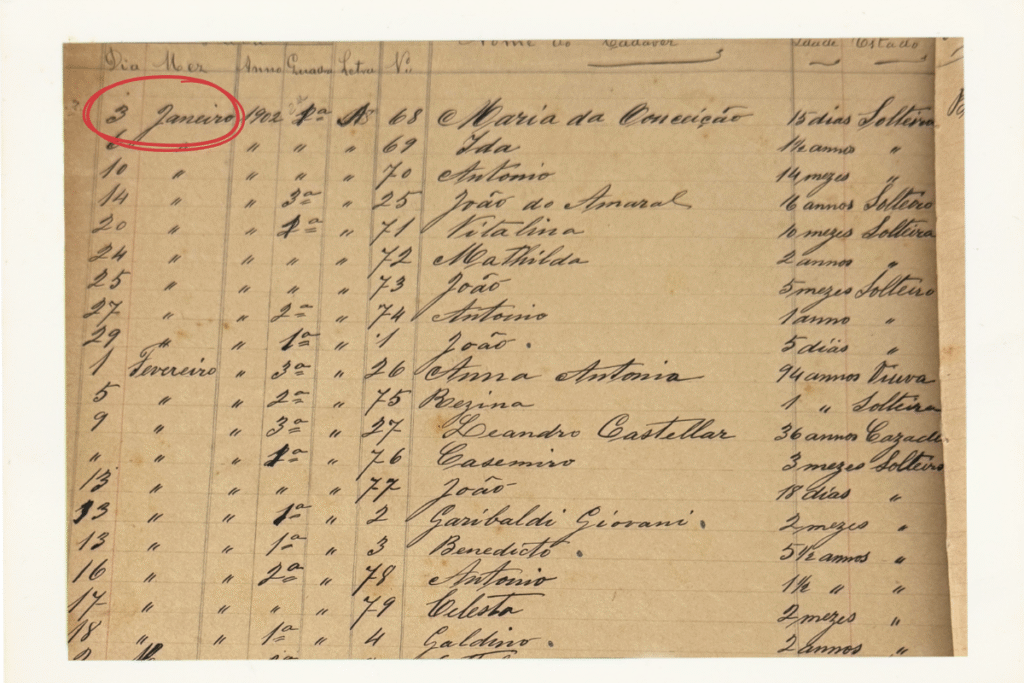 Nome do Cadaver Idade Estado
Dia Mez Anno Quadra Letra No
3 Janeiro 1902 1ª 68 Maria da Conceição 15 dias Solteira
" " " " 69 Ida 1½ annos "
10 " " " " 70 Antonio 14 mezes "
14 " " 3ª " 25 João do Amaral 16 annos Solteiro
20 " " " 71 Vitalina 10 mezes Solteira
24 " " " " 72 Mathilda 2 annos "
25 " " " " 73 João 5 mezes Solteiro
27 " " 2ª " 74 Antonio 1 anno "
29 " " 1ª " 1 João . 5 dias "
1 Fevereiro " 3ª " 26 Anna Antonia 94 annos Viuva
5 " " 2ª " 75 Regina 1 " Solteira
9 " " 3ª " 27 Leandro Castellar 36 annos
" " " " 76 Casemiro 3 mezes Solteiro
13 " " " " 77 João 18 dias "
13 " " 1ª " 2 Garibaldi Giovani . 2 mezes "
13 " " 1ª " 3 Benedicto . 5½ annos "
16 " " 2ª " 78 Antonio 1½ " "
17 " " " " 79 Celesta 2 mezes "
18 " " 1ª " 4 Galdino . 2 annos "